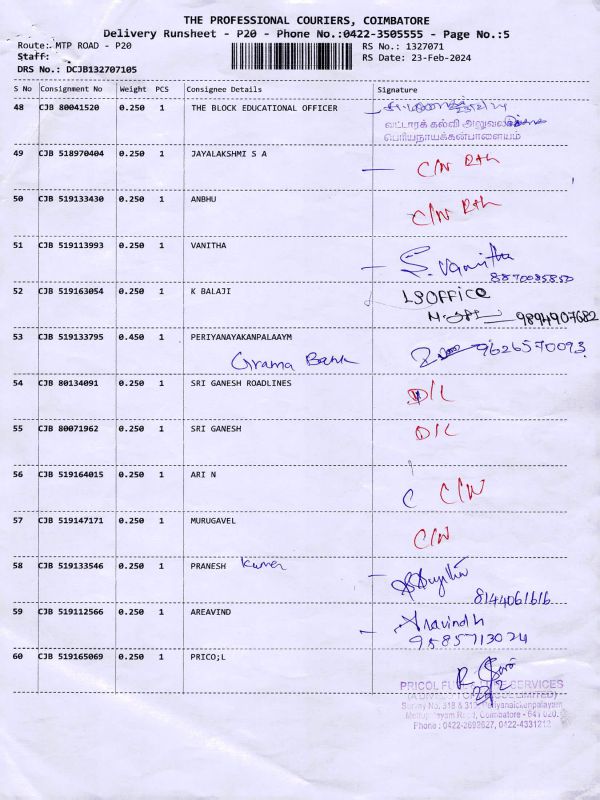 THE PROFESSIONAL COURIERS, COIMBATORE
Delivery Runsheet - P20 - Phone No.:0422-3505555 - Page No.:5
Route: MTP ROAD - P20 RS No.: 1327071
Staff: RS Date: 23-Feb-2024
DRS No.: DCJB132707105
S No Consignment No Weight PCS Consignee Details Signature
48 CJB 80041520 0.250 1 THE BLOCK EDUCATIONAL OFFICER
வட்டாரக் கல்வி அலுவலர்
பெரியநாயக்கன்பாளையம்
49 CJB 518970404 0.250 1 JAYALAKSHMI S A C/N
50 CJB 519133430 0.250 1 ANBHU C/N
51 CJB 519113993 0.250 1 VANITHA S. Vanitha
8870085850
52 CJB 519163054 0.250 1 K BALAJI LSOFFICE
9894907682
53 CJB 519133795 0.450 1 PERIYANAYAKANPALAAYM 9626570093
Grama Bank
54 CJB 80134091 0.250 1 SRI GANESH ROADLINES D/L
55 CJB 80071962 0.250 1 SRI GANESH D/L
56 CJB 519164015 0.250 1 ARI N C/N
57 CJB 519147171 0.250 1 MURUGAVEL C/N
58 CJB 519133546 0.250 1 PRANESH Kumar
8144061616
59 CJB 519112566 0.250 1 AREAVIND Aravindh
9585713024
60 CJB 519165069 0.250 1 PRICO;L
PRICOL SERVICES
Survey No. 318 & Periyanaickenpalayam
Coimbatore - 641 020.
Phone : 0422-2692627, 0422-4331212